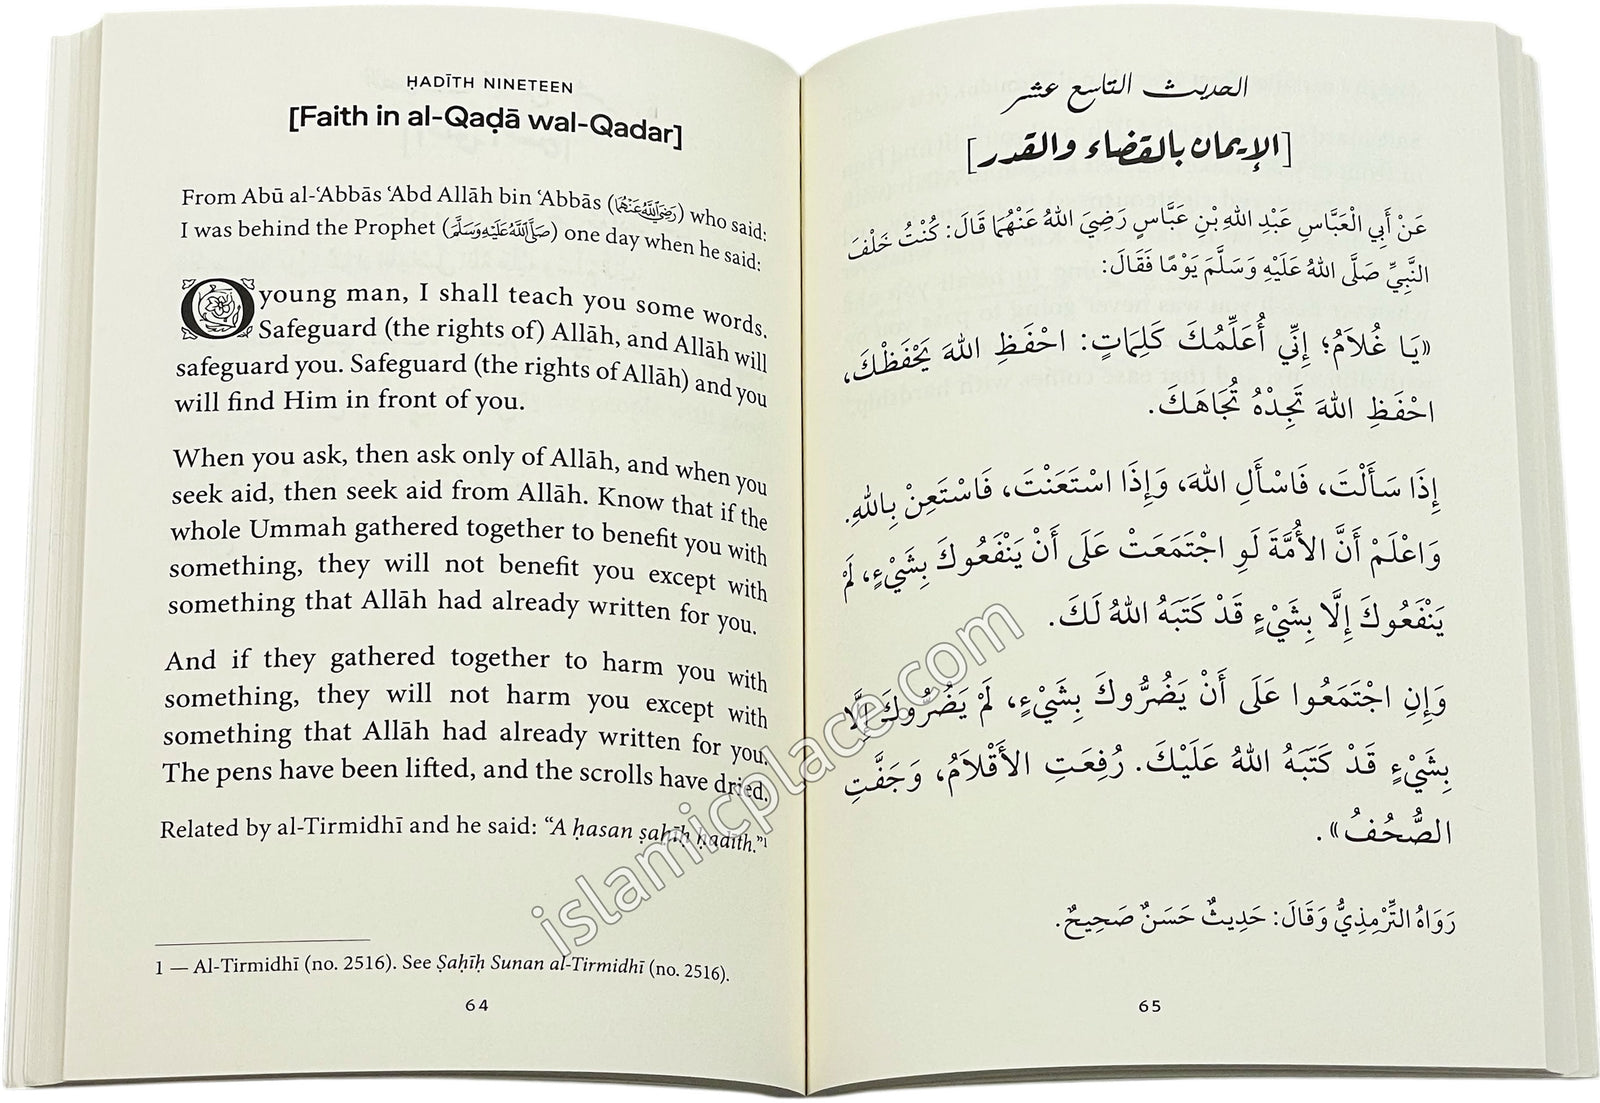 ḤADĪTH NINETEEN
[Faith in al-Qaḍā wal-Qadar]
From Abū al-ʿAbbās ʿAbd Allāh bin ʿAbbās (رَضِيَ اللَّهُ عَنْهُمَا) who said:
I was behind the Prophet (صَلَّى اللَّهُ عَلَيْهِ وَسَلَّمَ) one day when he said:
O young man, I shall teach you some words.
Safeguard (the rights of) Allāh, and Allāh will
safeguard you. Safeguard (the rights of Allāh) and you
will find Him in front of you.
When you ask, then ask only of Allāh, and when you
seek aid, then seek aid from Allāh. Know that if the
whole Ummah gathered together to benefit you with
something, they will not benefit you except with
something that Allāh had already written for you.
And if they gathered together to harm you with
something, they will not harm you except with
something that Allāh had already written for you.
The pens have been lifted, and the scrolls have dried.
Related by al-Tirmidhī and he said: “A ḥasan ṣaḥīḥ ḥadīth.”1
1 — Al-Tirmidhī (no. 2516). See Ṣaḥīḥ Sunan al-Tirmidhī (no. 2516).
64
الحديث التاسع عشر
[الإيمان بالقضاء والقدر]
عَنْ أَبِي الْعَبَّاسِ عَبْدِ اللهِ بْنِ عَبَّاسٍ رَضِيَ اللهُ عَنْهُمَا قَالَ: كُنْتُ خَلْفَ
النَّبِيِّ صَلَّى اللهُ عَلَيْهِ وَسَلَّمَ يَوْمًا فَقَالَ:
«يَا غُلَامُ؛ إِنِّي أُعَلِّمُكَ كَلِمَاتٍ: احْفَظِ اللهَ يَحْفَظْكَ،
احْفَظِ اللهَ تَجِدْهُ تُجَاهَكَ.
إِذَا سَأَلْتَ، فَاسْأَلِ اللهَ، وَإِذَا اسْتَعَنْتَ، فَاسْتَعِنْ بِاللهِ.
وَاعْلَمْ أَنَّ الأُمَّةَ لَوِ اجْتَمَعَتْ عَلَى أَنْ يَنْفَعُوكَ بِشَيْءٍ، لَمْ
يَنْفَعُوكَ إِلَّا بِشَيْءٍ قَدْ كَتَبَهُ اللهُ لَكَ.
وَإِنِ اجْتَمَعُوا عَلَى أَنْ يَضُرُّوكَ بِشَيْءٍ، لَمْ يَضُرُّوكَ إِلَّا
بِشَيْءٍ قَدْ كَتَبَهُ اللهُ عَلَيْكَ. رُفِعَتِ الأَقْلَامُ، وَجَفَّتِ
الصُّحُفُ».
رَوَاهُ التِّرْمِذِيُّ وَقَالَ: حَدِيثٌ حَسَنٌ صَحِيحٌ.
65
islamicplace.com